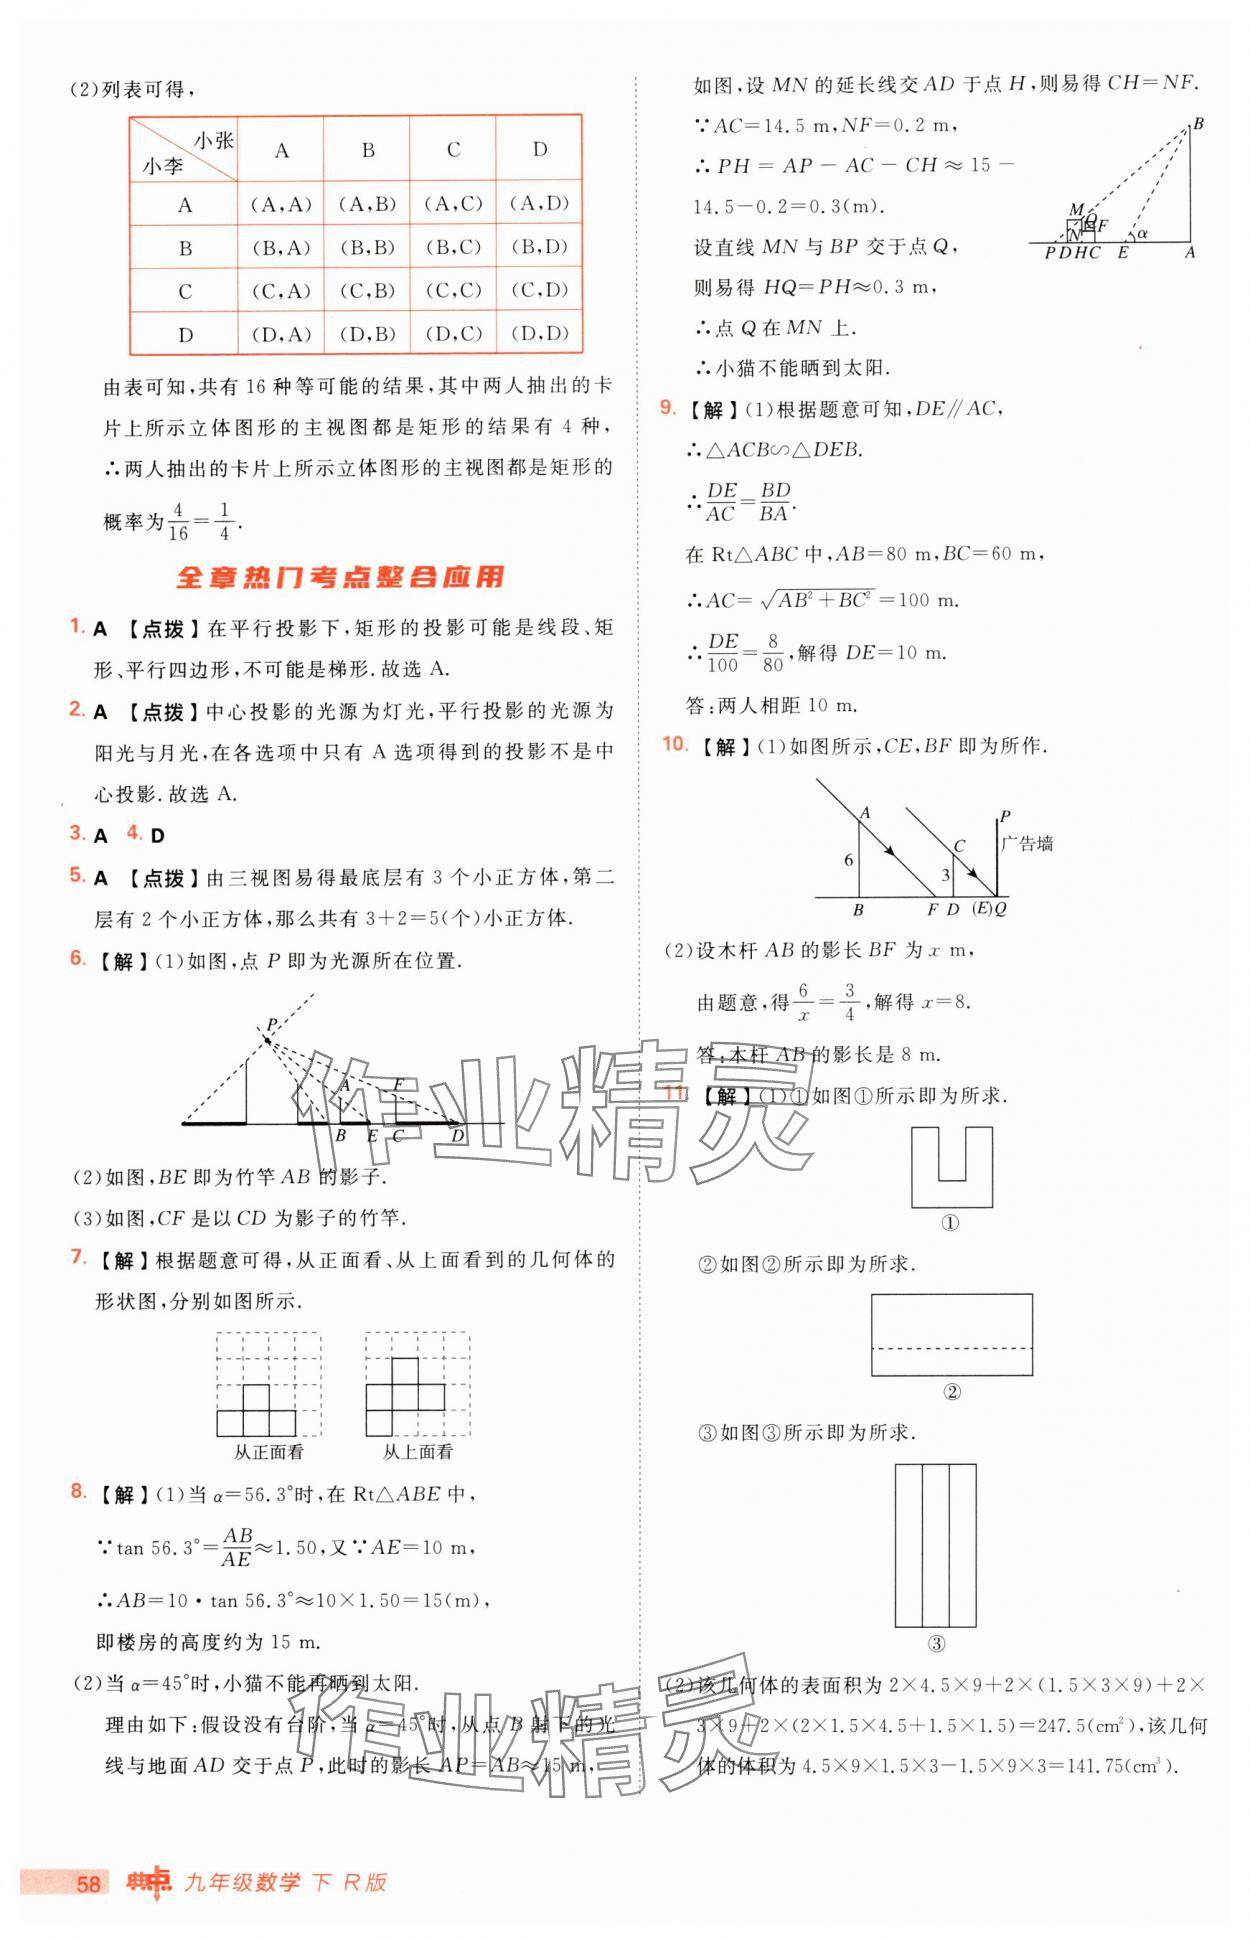 (2)列表可得，
小张
小李
A B C D
A (A,A) (A,B) (A,C) (A,D)
B (B,A) (B,B) (B,C) (B,D)
C (C,A) (C,B) (C,C) (C,D)
D (D,A) (D,B) (D,C) (D,D)
由表可知，共有 16 种等可能的结果，其中两人抽出的卡
片上所示立体图形的主视图都是矩形的结果有 4 种，
∴两人抽出的卡片上所示立体图形的主视图都是矩形的
概率为4/16=1/4.
全章热门考点整合应用
1. A 【点拨】在平行投影下，矩形的投影可能是线段、矩
形、平行四边形，不可能是梯形.故选 A.
2. A 【点拨】中心投影的光源为灯光，平行投影的光源为
阳光与月光，在各选项中只有 A 选项得到的投影不是中
心投影.故选 A.
3. A 4. D
5. A 【点拨】由三视图易得最底层有 3 个小正方体，第二
层有 2 个小正方体，那么共有 3+2=5(个)小正方体.
6. 【解】(1)如图，点 P 即为光源所在位置.
P
A F
B E C D
(2)如图，BE 即为竹竿 AB 的影子.
(3)如图，CF 是以 CD 为影子的竹竿.
7. 【解】根据题意可得，从正面看、从上面看到的几何体的
形状图，分别如图所示.
从正面看 从上面看
8. 【解】(1)当 α=56.3°时，在 Rt△ABE 中，
∵tan 56.3°=AB/AE≈1.50，又∵AE=10 m，
∴AB=10·tan 56.3°≈10×1.50=15(m)，
即楼房的高度约为 15 m.
(2)当 α=45°时，小猫不能再晒到太阳.
理由如下：假设没有台阶，当 α=45°时，从点 B 射下的光
线与地面 AD 交于点 P，此时的影长 AP=AB≈15 m，
如图，设 MN 的延长线交 AD 于点 H，则易得 CH=NF.
∵AC=14.5 m，NF=0.2 m，
∴PH = AP - AC - CH ≈ 15 -
14.5-0.2=0.3(m).
设直线 MN 与 BP 交于点 Q，
则易得 HQ=PH≈0.3 m，
∴点 Q 在 MN 上.
∴小猫不能晒到太阳.
B
M Q
N F α
P D H C E A
9. 【解】(1)根据题意可知，DE∥AC，
∴△ACB∽△DEB.
∴DE/AC=BD/BA.
在 Rt△ABC 中，AB=80 m，BC=60 m，
∴AC=√(AB²+BC²)=100 m.
∴DE/100=8/80，解得 DE=10 m.
答：两人相距 10 m.
10. 【解】(1)如图所示，CE，BF 即为所作.
A P
C 广告墙
6 3
B F D (E)Q
(2)设木杆 AB 的影长 BF 为 x m，
由题意，得6/x=3/4，解得 x=8.
答：木杆 AB 的影长是 8 m.
11. 【解】(1)①如图①所示即为所求.
①
②如图②所示即为所求.
②
③如图③所示即为所求.
③
(2)该几何体的表面积为 2×4.5×9+2×(1.5×3×9)+2×
3×9+2×(2×1.5×4.5+1.5×1.5)=247.5(cm²)，该几何
体的体积为 4.5×9×1.5×3-1.5×9×3=141.75(cm³).
作业精灵
作业精灵
58 典点 九年级数学 下 R版